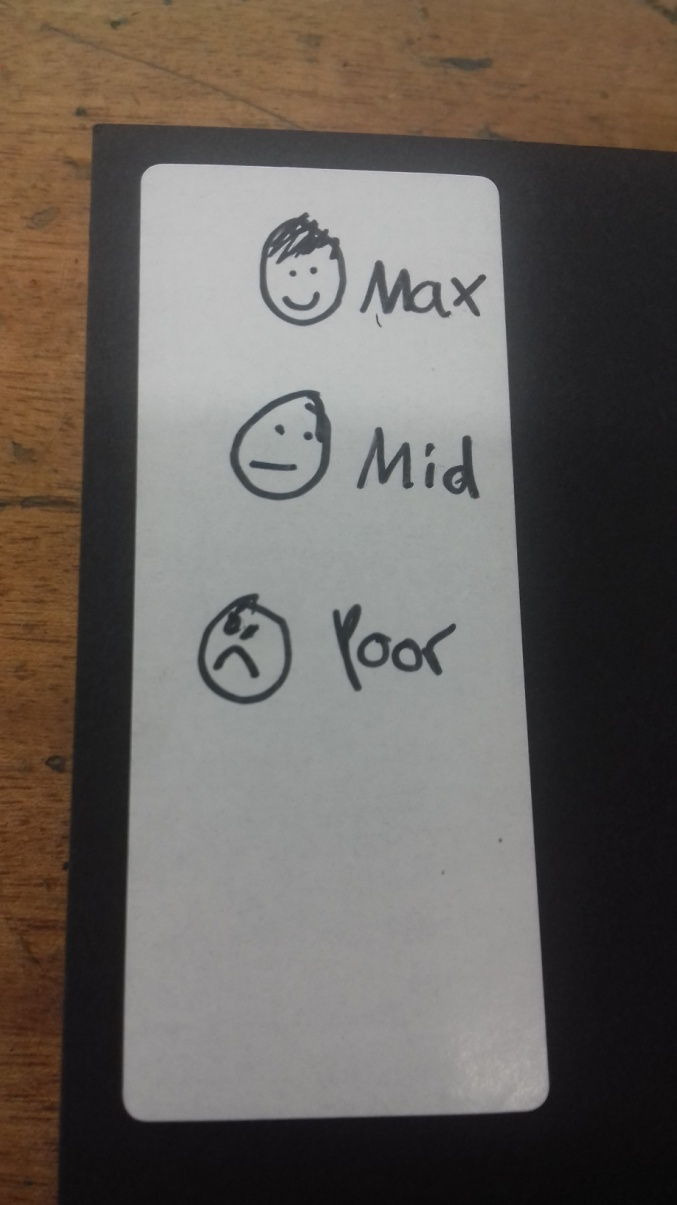 Max
Mid
Poor